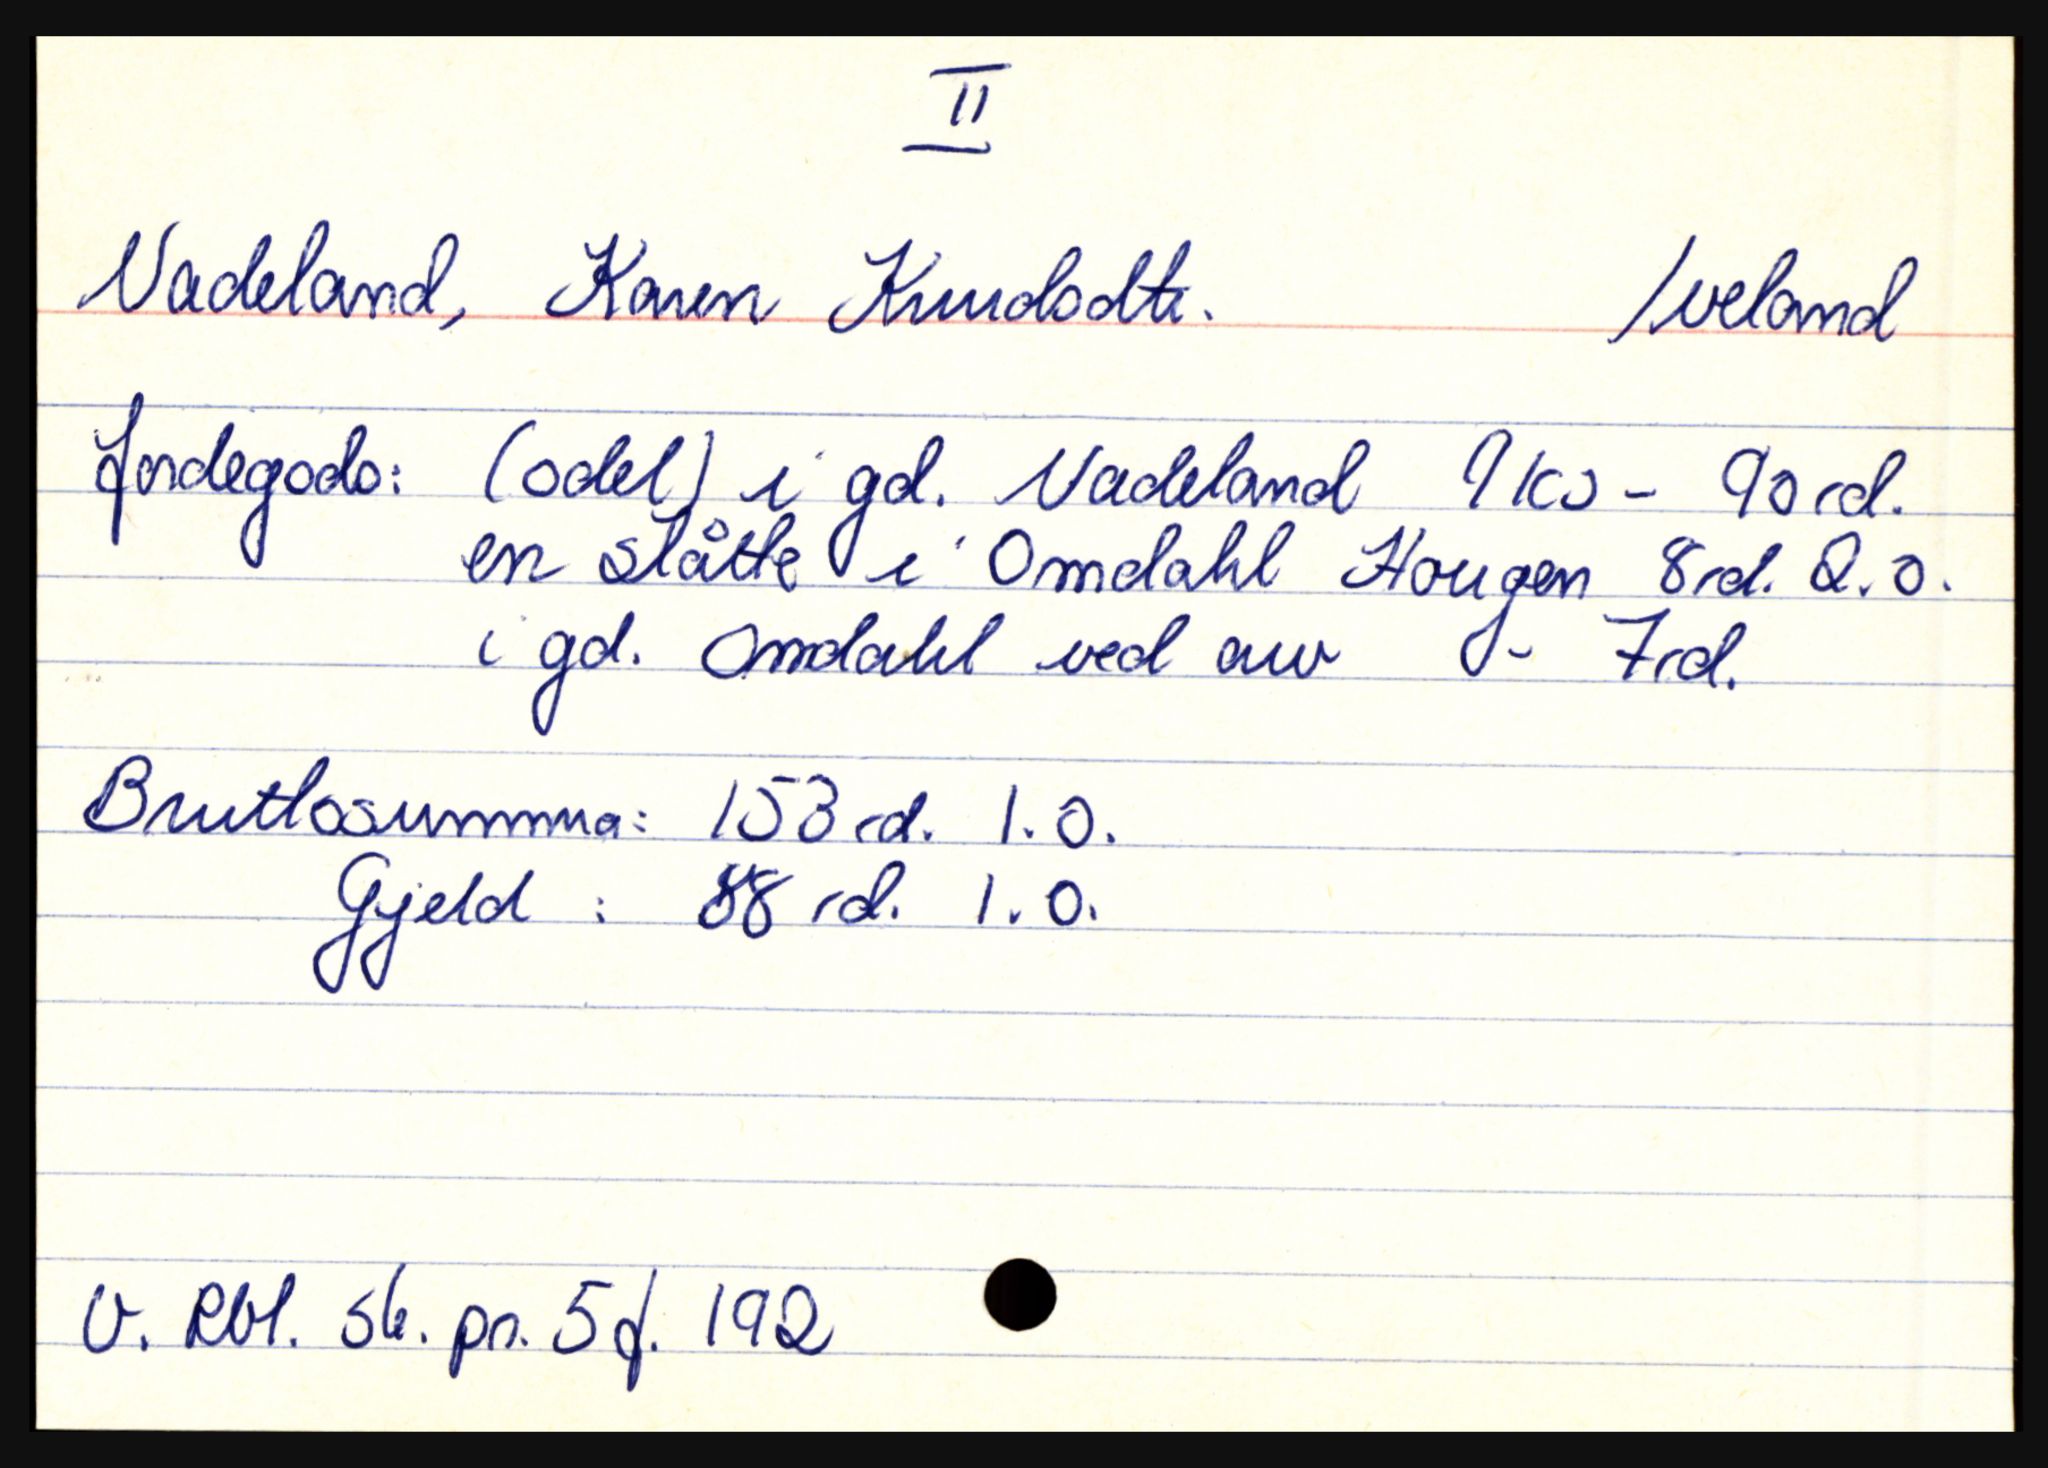 II
Vadeland, Karen Knudsdtr. Iveland
Jordegods: (odel) i gd. Vadeland 9 ks - 90 rd.
en slåtte i Omdahl Hougen 8 rd. 2. 0.
i gd. Omdahl ved arv - 7 rd.
Bruttosumma: 153 rd. 1. 0.
Gjeld : 88 rd. 1. 0.
V. Rbl. sk. pr. 5 f. 192